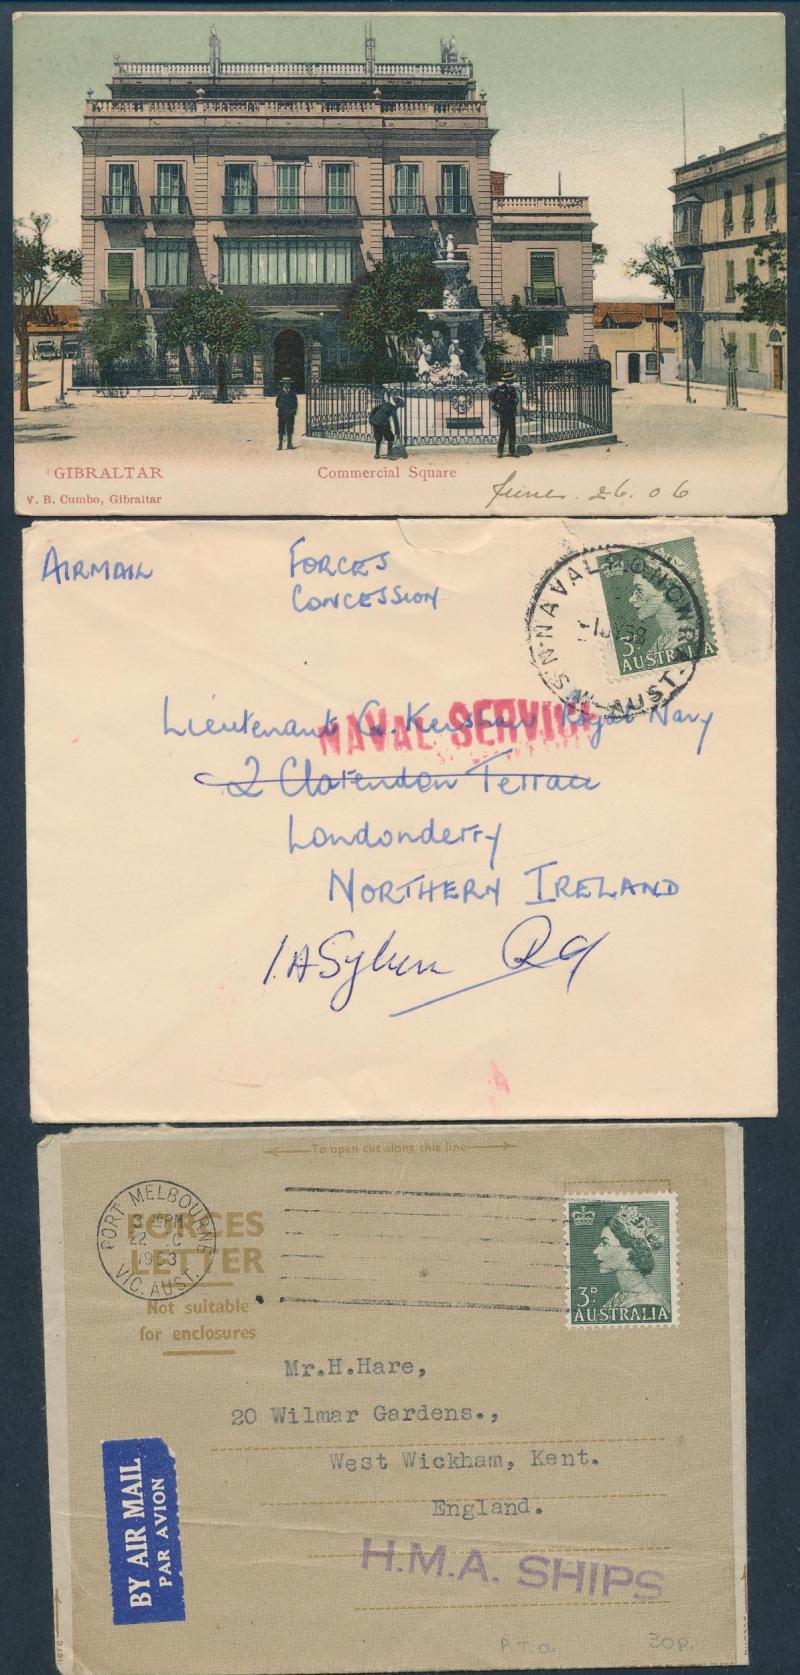 GIBRALTAR
Commercial Square
V. B. Cumbo, Gibraltar
June. 26. 06
AIRMAIL
FORCES
CONCESSION
NAVAL P.O. NOWRA
N.S.W. AUST.
3D
AUSTRALIA
NAVAL SERVICE
Lieutenant G. Kershaw Royal Navy
2 Clarendon Terrace
Londonderry
NORTHERN IRELAND
To open cut along this line
PORT MELBOURNE
22
1953
VIC. AUST.
FORCES
LETTER
Not suitable
for enclosures
3D
AUSTRALIA
Mr.H.Hare,
20 Wilmar Gardens.,
West Wickham, Kent.
England.
BY AIR MAIL
PAR AVION
H.M.A. SHIPS
P.T.O.
30p.
here